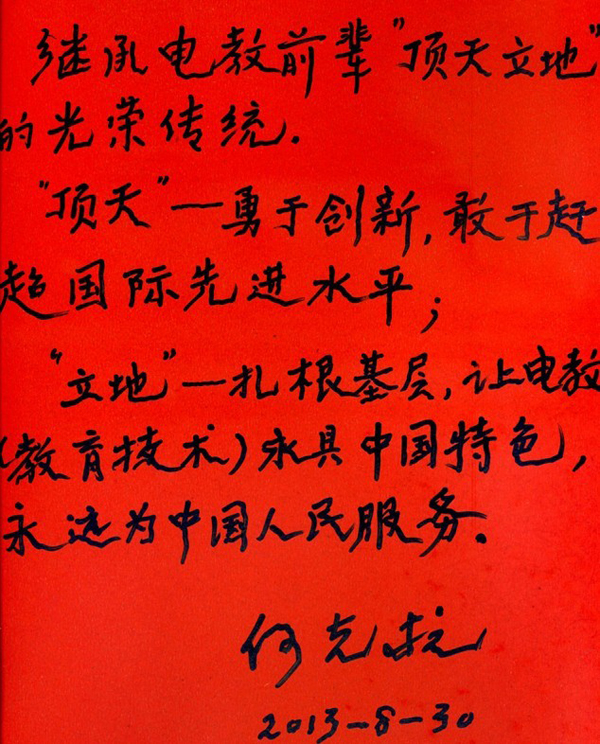 继承电教前辈"顶天立地"
的光荣传统.
"顶天"—勇于创新,敢于赶
超国际先进水平;
"立地"—扎根基层,让电教
(教育技术)永具中国特色,
永远为中国人民服务.
何克抗
2013-8-30